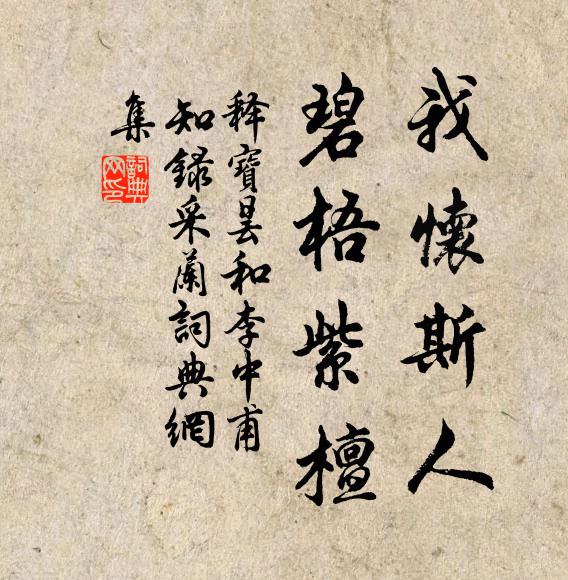 我懷斯人
碧梧紫檀
释寶曇和李中甫
知録采蘭詞典網
集
詞典网印